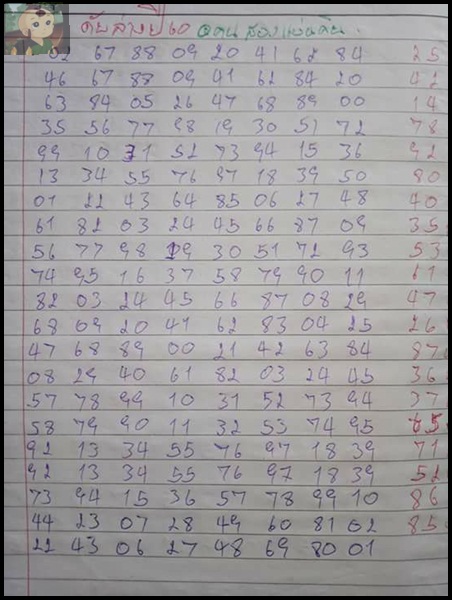 ดับล่างปี 60 สองแผ่นดิน
02 67 88 09 20 41 62 84 25
46 67 88 09 41 62 84 20 42
63 84 05 26 47 68 89 00 14
35 56 77 98 19 30 51 72 78
99 10 31 52 73 94 15 36 92
13 34 55 76 97 18 39 50 80
01 22 43 64 85 06 27 48 40
61 82 03 24 45 66 87 09 35
56 77 98 19 30 51 72 93 53
74 95 16 37 58 79 90 11 61
82 03 24 45 66 87 08 29 47
68 09 20 41 62 83 04 25 26
47 68 89 00 21 42 63 84 87
08 29 40 61 82 03 24 45 36
57 78 99 10 31 52 73 94 37
58 79 90 11 32 53 74 95 65
92 13 34 55 76 97 18 39 71
92 13 34 55 76 97 18 39 52
73 94 15 36 57 78 99 10 86
44 23 07 28 49 60 81 02 85
22 43 06 27 48 69 80 01